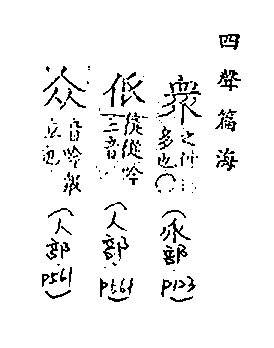 四聲篇海
衆 之仲 多也〇
(㐺部 p123)
伥 從從吟 三音
(人部 p561)
众 音吟衆 立也
(人部 p561)